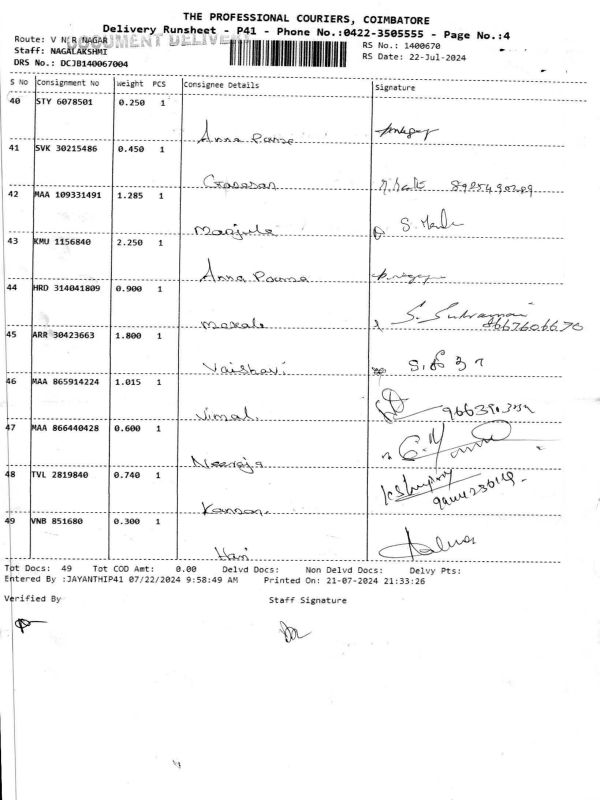 THE PROFESSIONAL COURIERS, COIMBATORE
Delivery Runsheet - P41 - Phone No.:0422-3505555 - Page No.:4
DOCUMENT DELIVERY
Route: V NCR NAGAR
RS No.: 1400670
Staff: NAGALAKSHMI
RS Date: 22-Jul-2024
DRS No.: DCJB140067004
S No Consignment No Weight PCS Consignee Details Signature
40 STY 6078501 0.250 1
Anna Poorna
41 SVK 30215486 0.450 1
42 MAA 109331491 1.285 1
Manjula
43 KMU 1156840 2.250 1
Anna Poorna
44 HRD 314041809 0.900 1
S. Subramani
8667606670
45 ARR 30423663 1.800 1
Vaishavi
46 MAA 865914224 1.015 1
Vimal
47 MAA 866440428 0.600 1
Neeraja
48 TVL 2819840 0.740 1
Kannan
49 VNB 851680 0.300 1
Hari
Tot Docs: 49 Tot COD Amt: 0.00 Delvd Docs: Non Delvd Docs: Delvy Pts:
Entered By :JAYANTHIP41 07/22/2024 9:58:49 AM Printed On: 21-07-2024 21:33:26
Verified By Staff Signature